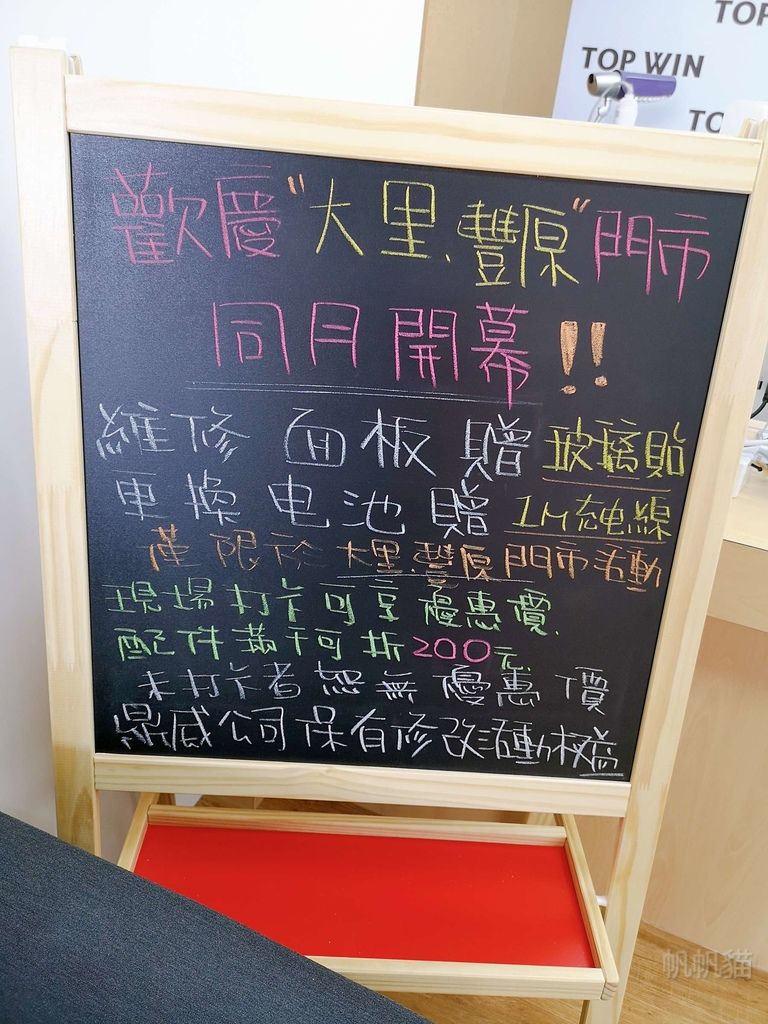 TOP
TOP WIN
TO
歡慶"大里、豐原"門市
同月開幕!!
維修 面板 贈 玻璃貼
更換 电池 贈 1M充电線
僅限於 大里.豐原門市活動
現場打卡可享優惠價.
配件滿千可折200元.
未打卡者恕無優惠價
鼎威公司保有修改活動權益
帆帆貓